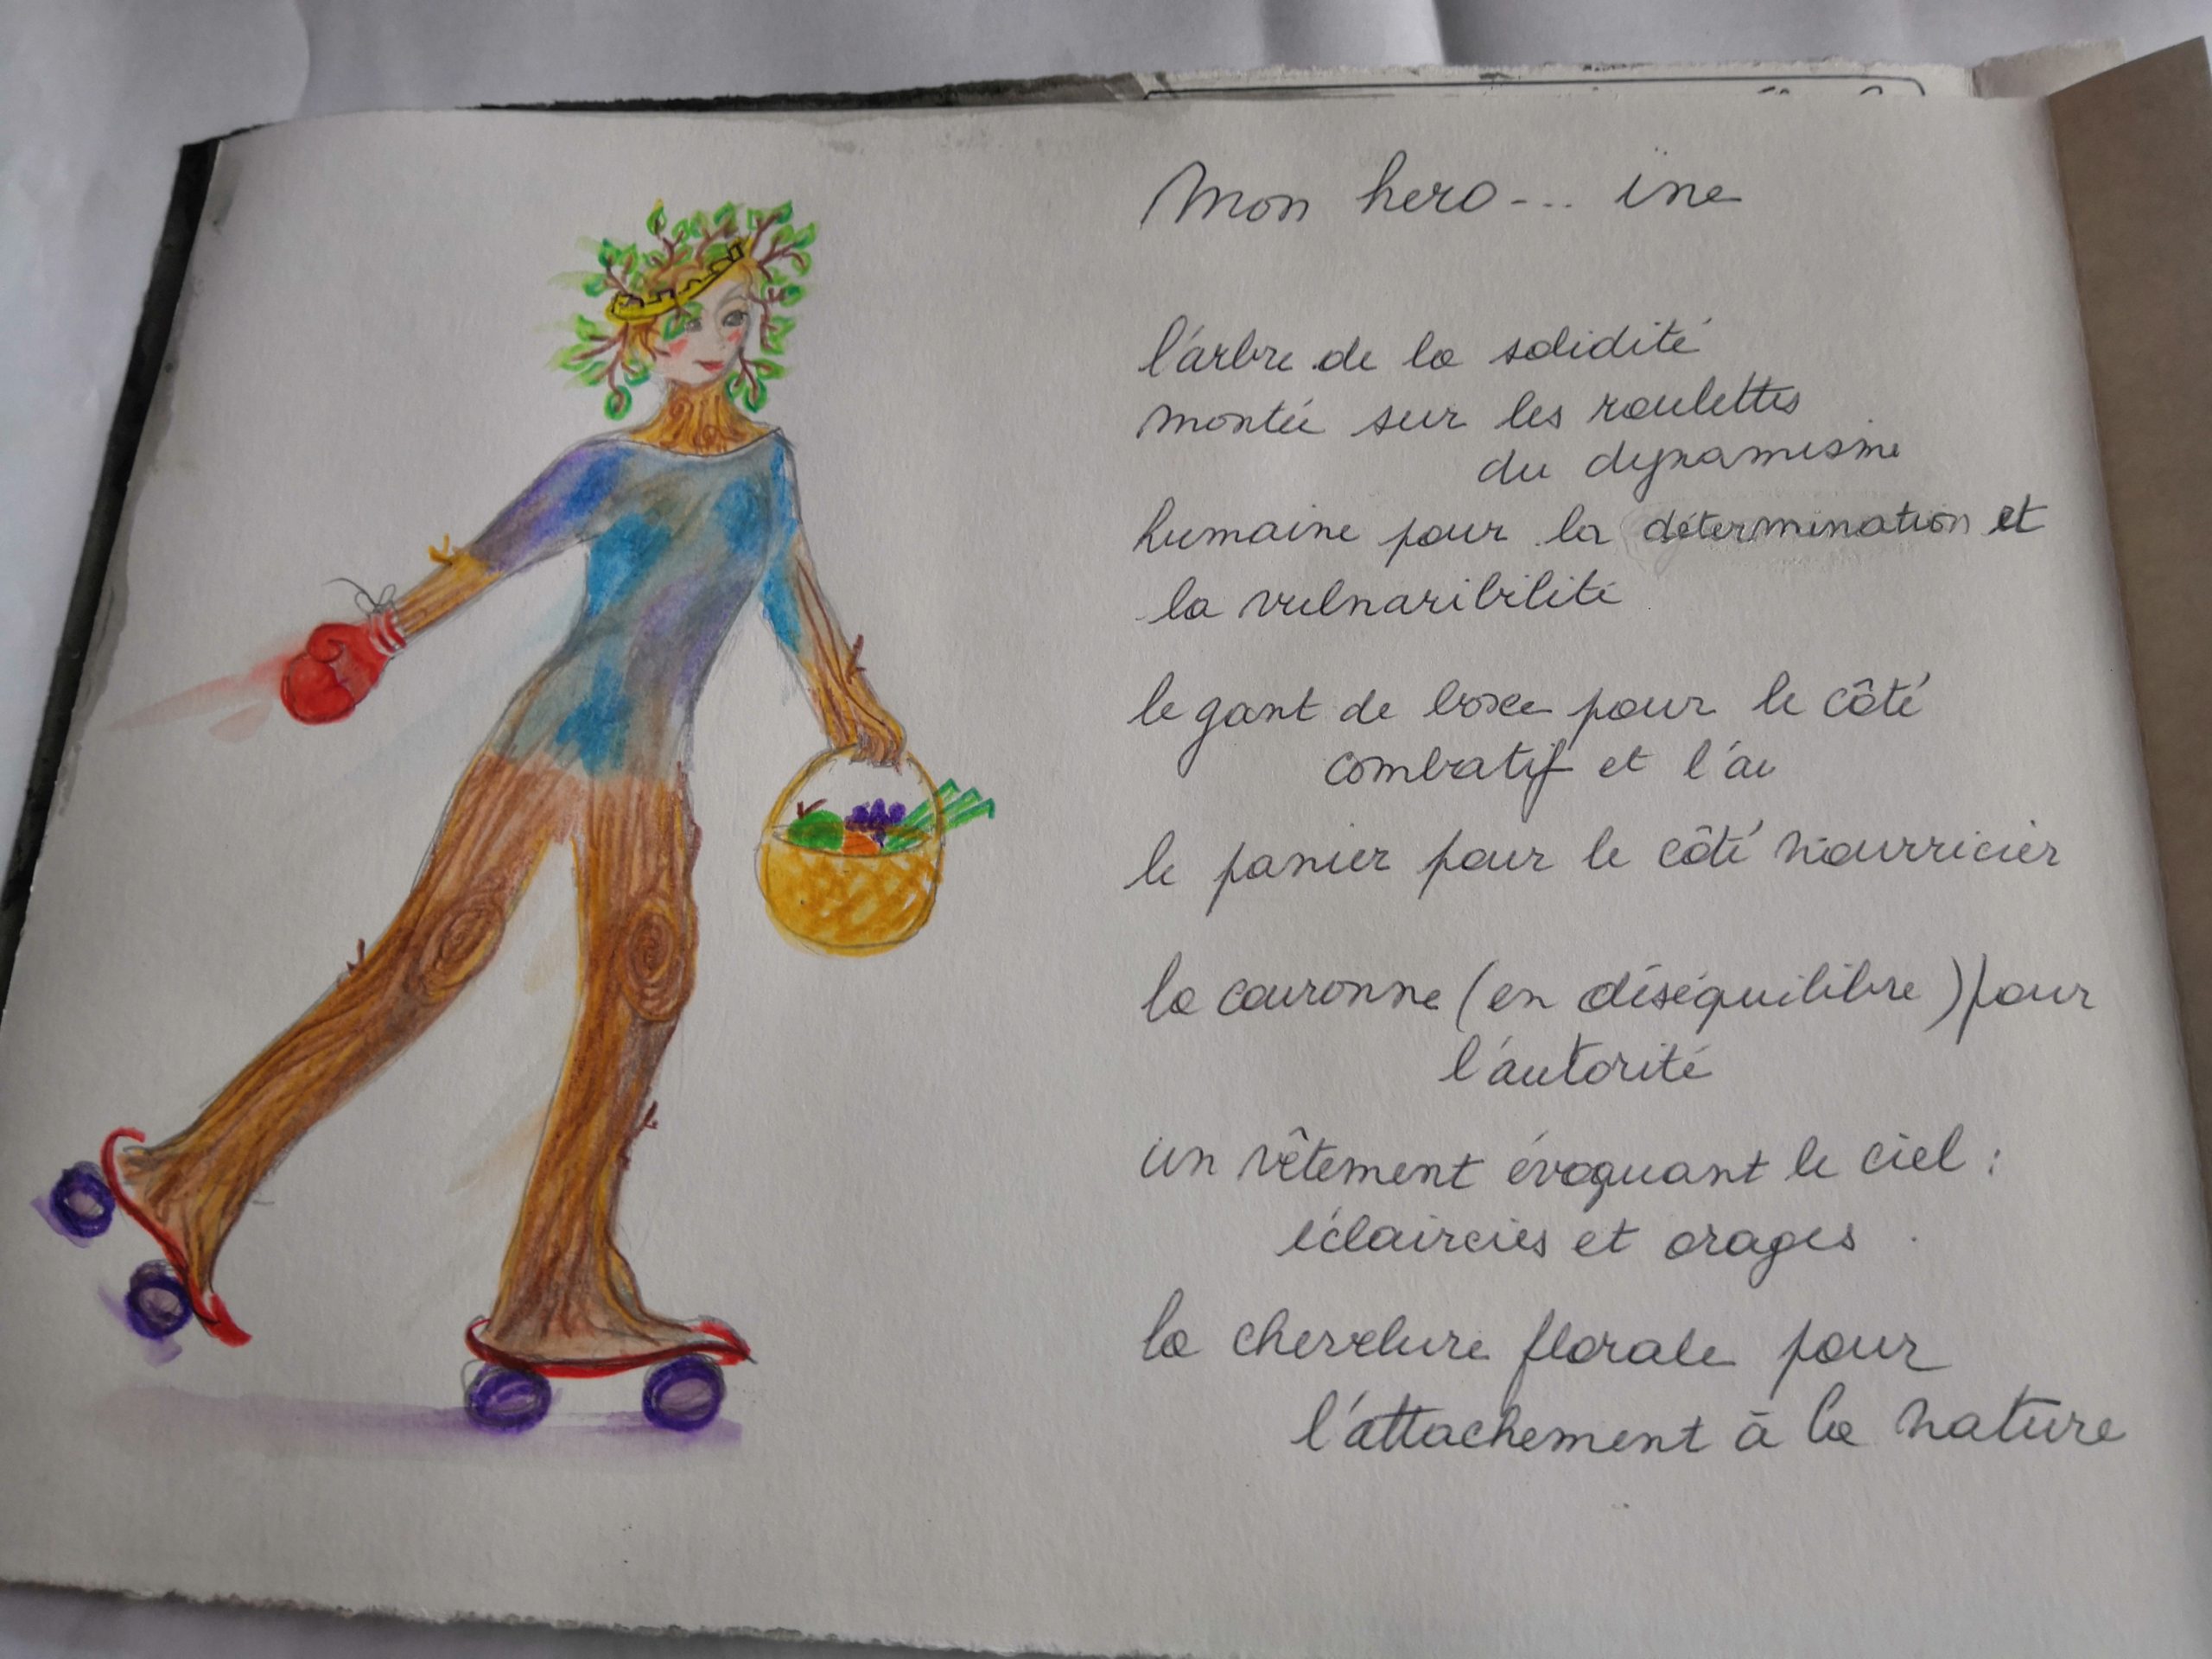 Mon hero... ïne
l'arbre de la solidité
montée sur les roulettes
du dynamisme
humaine pour la détermination et
la vulnaribilité
le gant de boxe pour le côté
combatif et l'au
le panier pour le côté nourricier
la couronne (en déséquilibre) pour
l'autorité
un vêtement évoquant le ciel :
éclaircies et orages
la chevelure florale pour
l'attachement à la nature